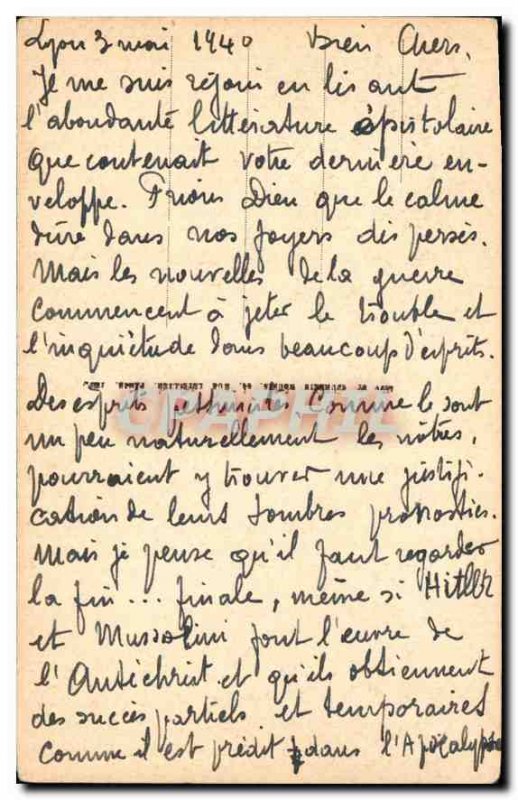 Lyon 3 mai 1940 Bien Chers,
Je me suis réjoui en lisant
l'abondante littérature épistolaire
que contenait votre dernière en-
veloppe. Prions Dieu que le calme
dure dans nos foyers dispersés.
Mais les nouvelles de la guerre
commencent à jeter le trouble et
l'inquiétude dans beaucoup d'esprits.
Des esprits pessimistes comme le sont
un peu naturellement les nôtres,
pourraient y trouver une justifi-
cation de leurs sombres pronostics.
Mais je pense qu'il faut regarder
la fin... finale, même si Hitler
et Mussolini font l'œuvre de
l'Antichrist et qu'ils obtiennent
des succès partiels et temporaires
comme il est prédit dans l'Apocalypse